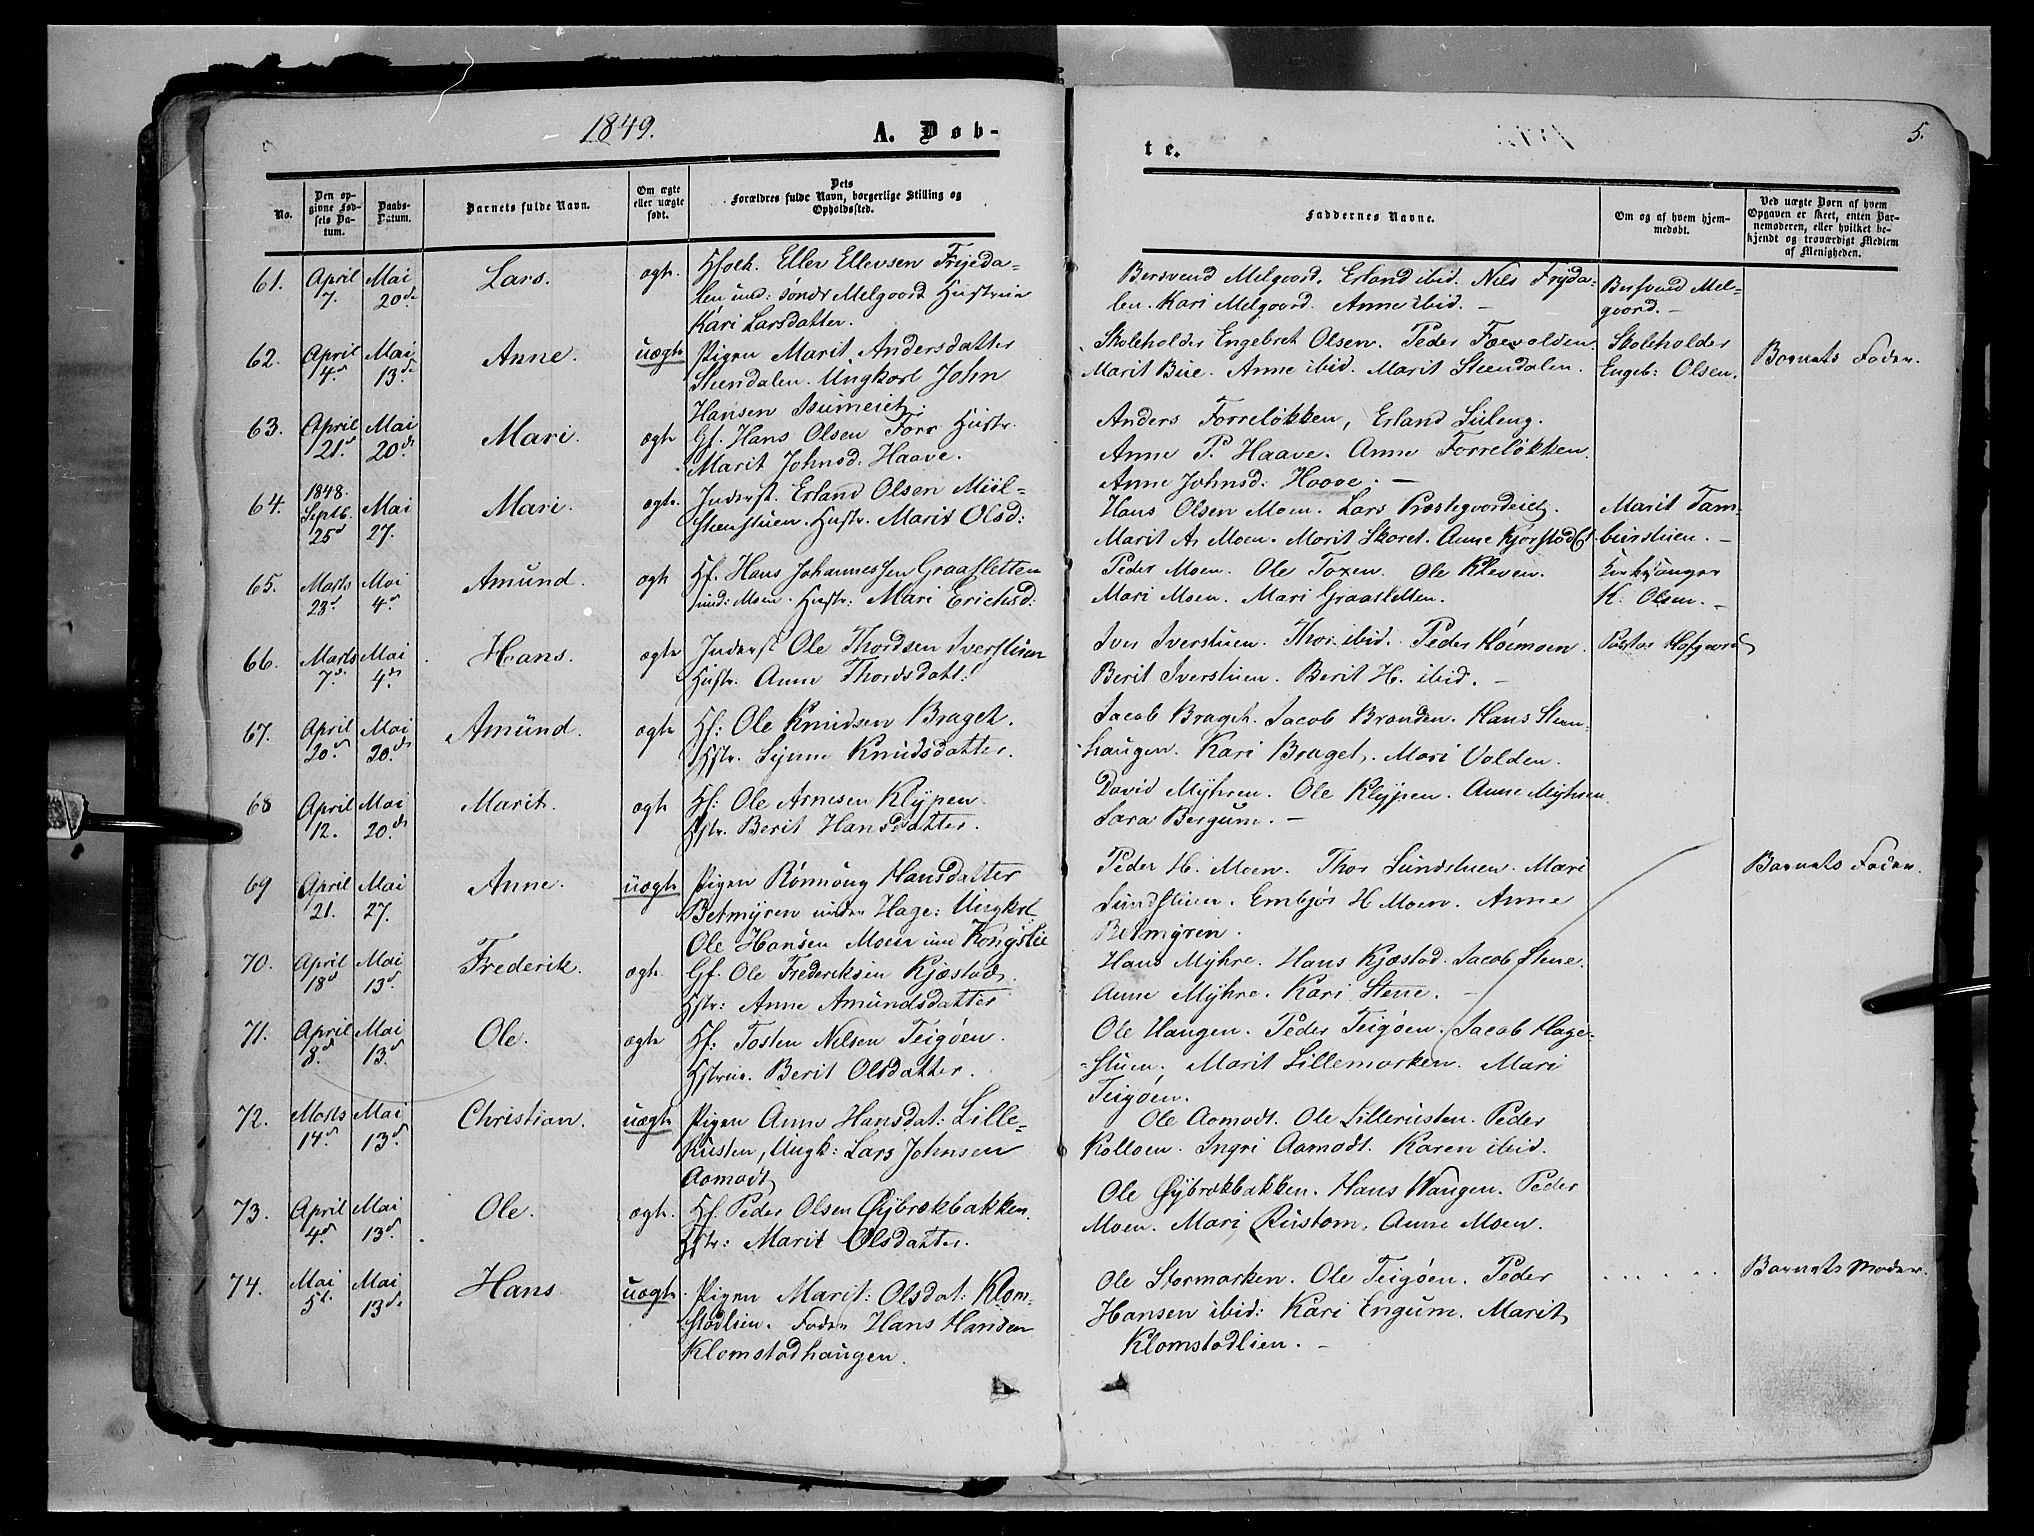 1849.
A. Døb-
te.
5.
No.
Den op-
givne Fød-
sels Da-
tum.
Daabs-
Datum.
Barnets fulde Navn.
Om ægte
eller uægte
født.
Dets
Forældres fulde Navn, borgerlige Stilling og
Opholdssted.
Faddernes Navne.
Om og af hvem hjem-
medøbt.
Ved uægte Børn af hvem
Opgaven er skeet, enten Bar-
nemoderen, eller hvilket be-
kjendt og troværdigt Medlem
af Menigheden.
61. April 7. Mai 20de Lars. ægte
Ellev Ellevsen Frijda-
len und: søndr Melgaard Hustrue
Kari Larsdatter.
Bersvend Melgaard. Erland ibid. Nils Frijda-
len. Kari Melgaard. Anne ibid. –
Bersvend Mel-
gaard. –
62. April 4. Mai 13de Anne. uægte
Pigen Marit Andersdatter
Steendalen. Ungkarl John
Hansen
Skoleholder Engebret Olsen. Peder
Marit Bue. Anne ibid. Marit Steendalen.
Skoleholder
Engeb: Olsen.
Barnets Fader.
63. April 21. Mai 20de Mari. ægte
Gf. Hans Olsen Forr Hustr.
Marit Johnsd. Haave.
Anders Forreløkken, Erland
Anne P. Haave. Anne Forreløkken.
Anne Johnsd: Haave. –
64. 1848. Septb. 25d Mai 27. Mari. ægte
Inderst. Erland Olsen Miil-
steenstuen. Hustr. Marit Olsd:
Hans Olsen Moen. Lars Præstegaardeiet.
Marit A. Moen. Marit Skoret. Anne Kjørstad
Marit Tam-
burstuen. –
65. Marts 23d Mai 4d Amund. ægte
Hf. Hans Johannessen Graasletten
und: Moen. Hustr: Mari Erichsd:
Peder Moen. Ole Toxen. Ole Kleven.
Mari Moen. Mari Graasletten.
Kirkesanger
K. Olsen. –
66. Marts 7d. Mai 4de Hans. ægte
Inderst Ole Thordsen Iverstuen
Hustr. Anne Thordsdatt:
Iver Iverstuen. Thor ibid. Peder Høimoen.
Berit Iverstuen. Berit H. ibid. –
Pastor Hofgaard
67. April 20d Mai 20de Amund. ægte
Hf: Ole Knudsen Braget.
Hstr. Synne Knudsdatter.
Jacob Braget. Jacob Branden. Hans Steen-
haugen. Kari Braget. Mari Volden.
68 April 12. Mai 20de Marit. ægte
Hf: Ole Arnesen Klypen
Hstr. Berit Hansdatter.
David Myhren. Ole Klypen. Anne Myhren
Sara Bergum. –
69 April 21. Mai 27. Anne. uægte
Pigen Rønnoug Hansdatter
Betmyren under Hage: Ungkrl.
Ole Hansen Moen und Kongslie
Peder H. Moen. Thor Sundstuen. Mari
Sundstuen. Embjør H Moen. Anne
Betmyren.
Barnets Fader.
70. April 18d Mai 13d. Frederik. ægte
Gf. Ole Frederiksen Kjæstad.
Hstr: Anne Amundsdatter
Hans Myhre. Hans Kjæstad. Jacob Stene.
Anne Myhre. Kari Stene. –
71. April 8d. Mai 13d. Ole. ægte
Hf: Tosten Nilsen Teigøen.
Hstrue. Berit Olsdatter.
Ole Haugen. Peder Teigøen. Jacob Hage-
stuen. Marit Lillemarken. Mari
Teigøen.
72. Marts 14d Mai 13d. Christian. uægte
Pigen Anne Hansdat: Lille-
Rusten, Ungk: Lars Johnsen
Aamodt
Ole Aamodt. Ole Lillerusten. Peder
Kolloen. Ingri Aamodt. Karen ibid.
73. April 4d. Mai 13d. Ole. ægte.
Hf. Peder Olsen Øybrækbakken.
Hstr: Marit Olsdatter.
Ole Øybrækbakken. Hans Haugen. Peder
Moen. Mari Rustom. Anne Moen.
74. Mai 5t. Mai 13de Hans. uægte.
Pigen Marit: Olsdat: Klom-
stadlien. Fader Hans Hansen
Klomstadhaugen.
Ole Stormarken. Ole Teigøen. Peder
Hansen ibid: Kari Engum. Marit
Klomstadlien. –
Barnets Moder.